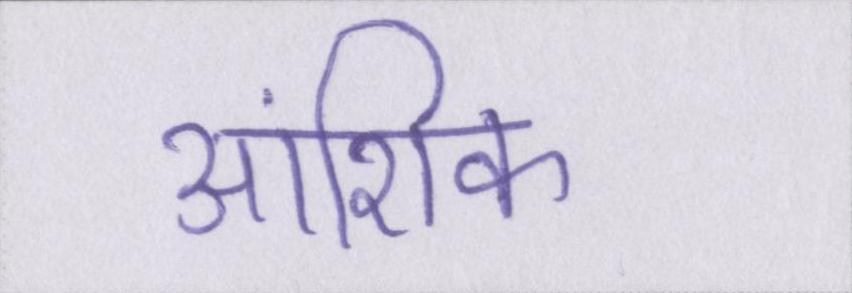 आंशिक